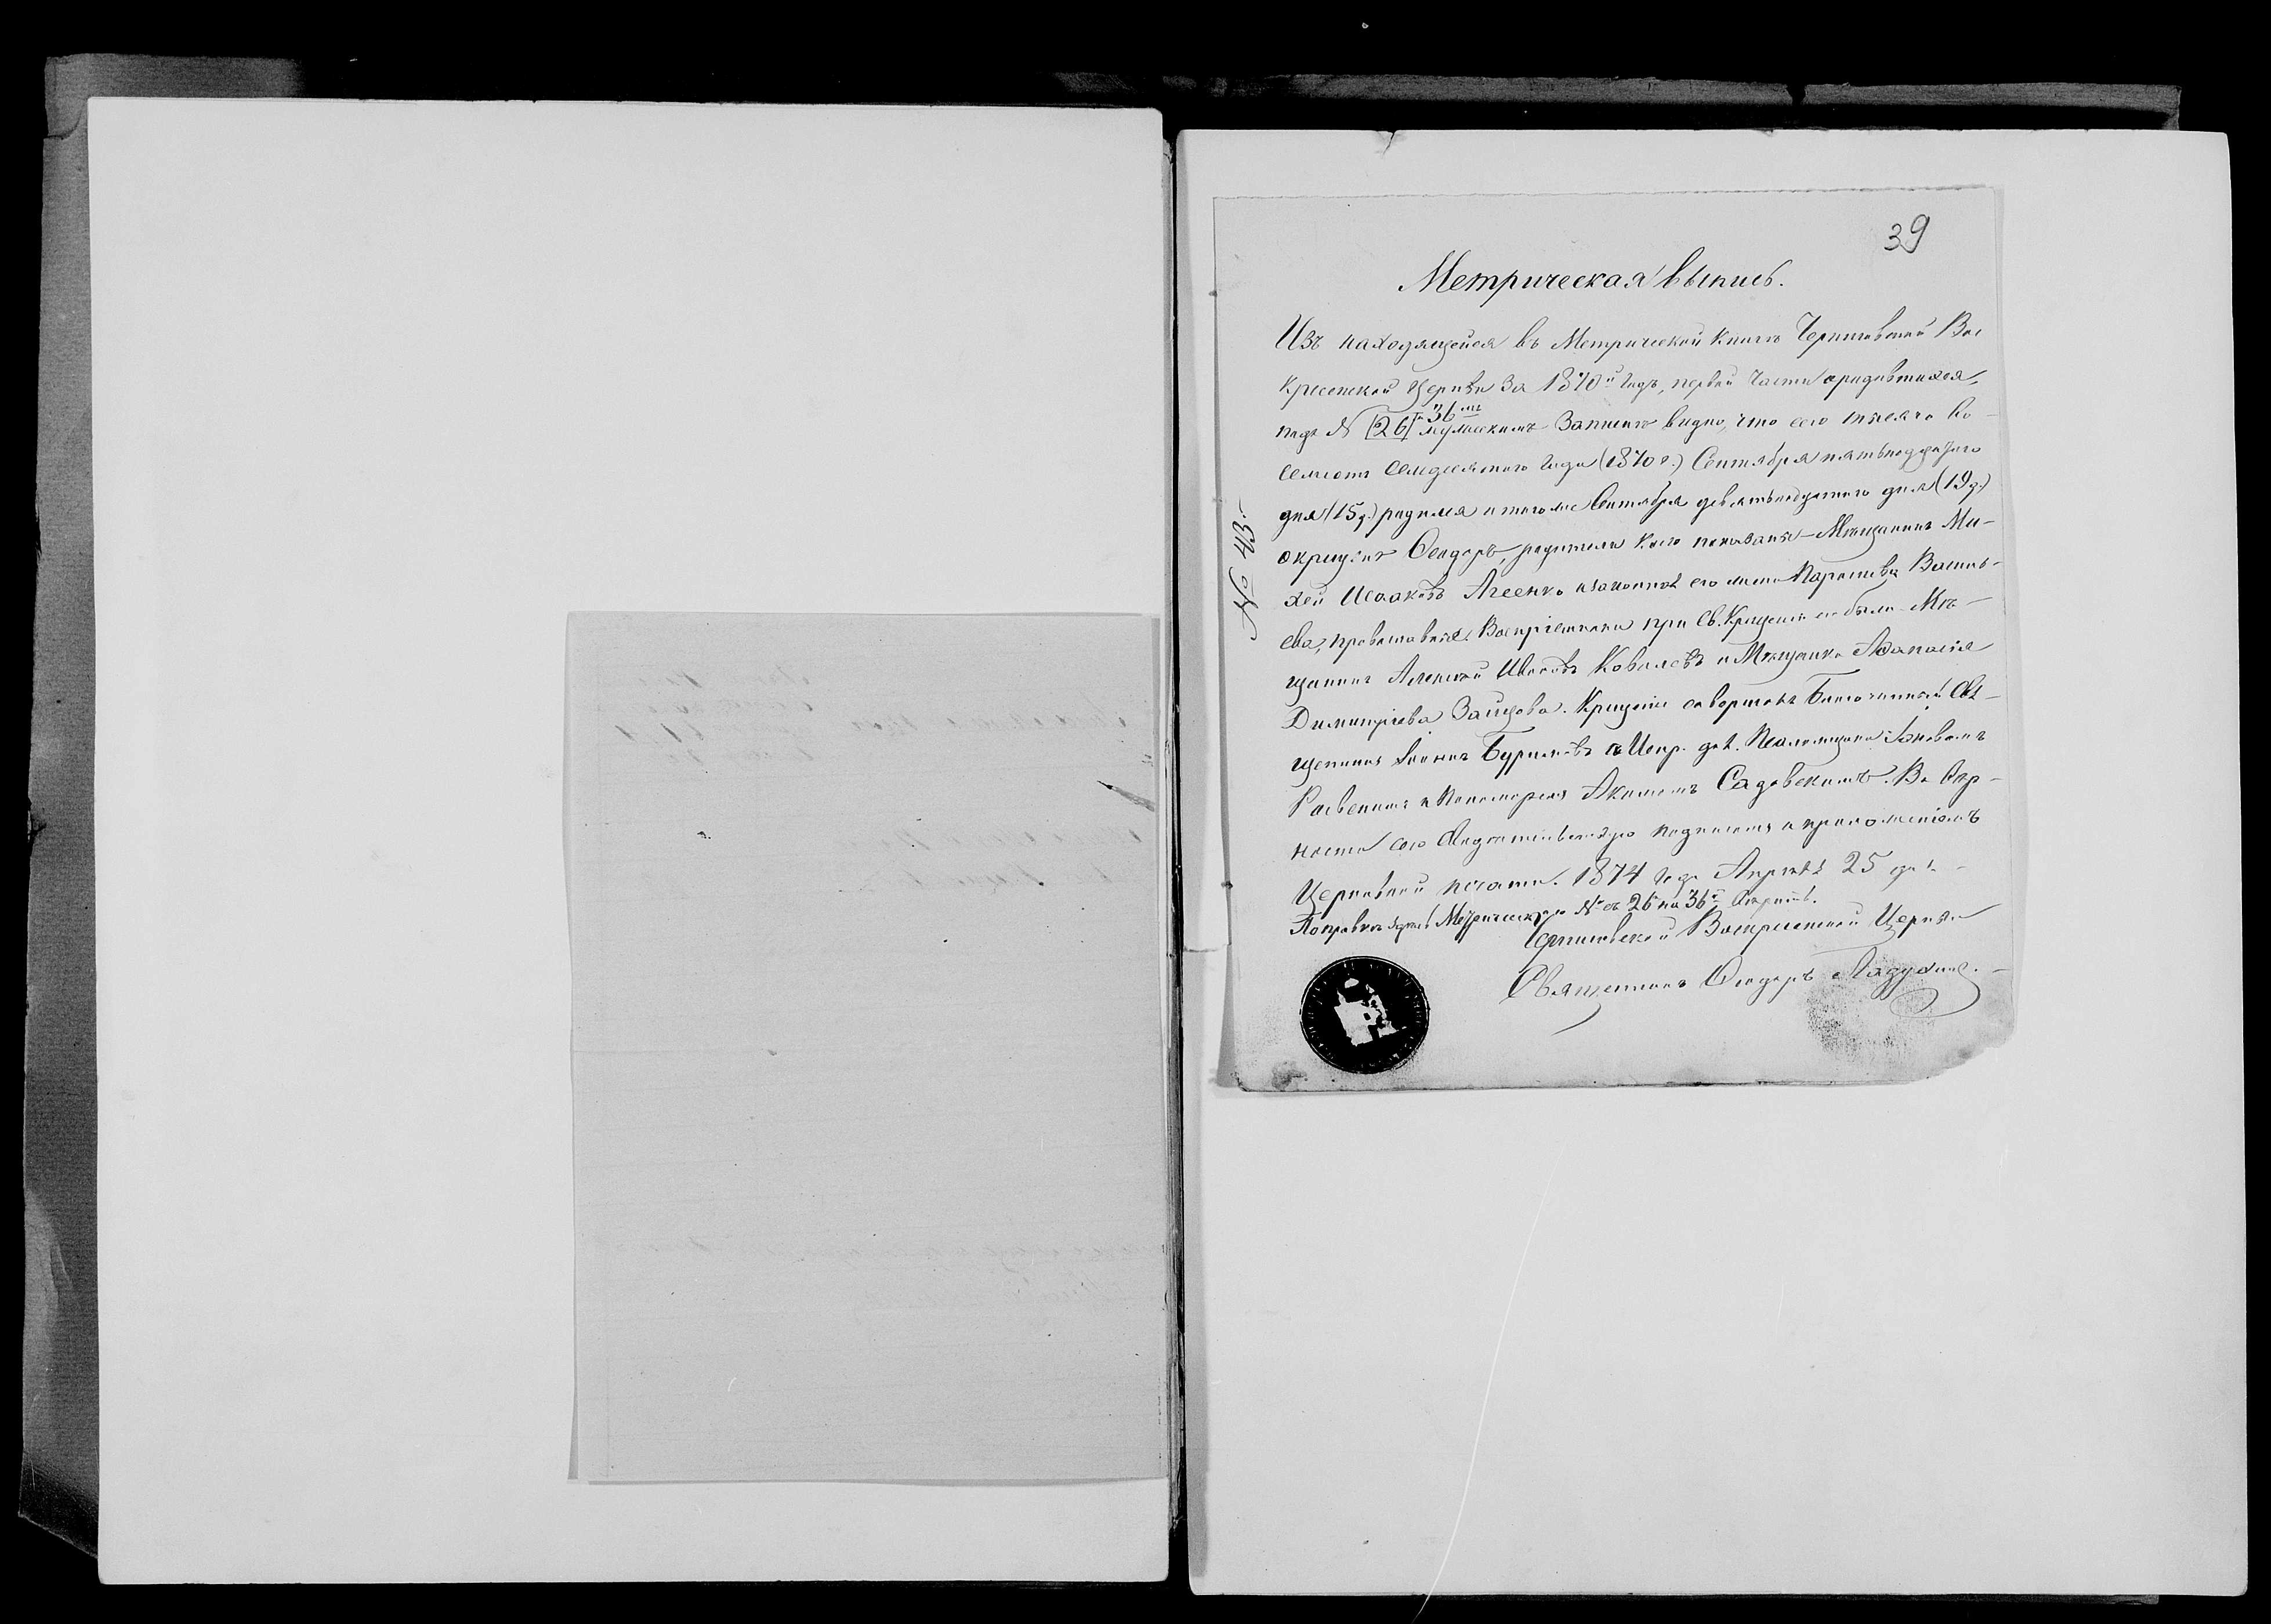 39
Метрическая выпись.
Изъ находящейся въ Метрической книгѣ Черниговской Вос
кресенской Церкви за 1870й годъ, первой части о родившихся,
подъ № [26] 36мъ мужескимъ записи видно, что сего тысяча во-
семьсотъ семдесятого года (1870 г.) Сентября пятьнадцатого
дня (15 д.) родился и того же Сентября девятьнадцатого дня (19 д.)
окрещенъ Ѳеодоръ, родители коего показаны – Мѣщанинъ Ми-
хей Исааковъ Агеенко и законная его жена Параскева Василь-
ева, православные. Воспріемники при Св. Крещеніи были – Мѣ-
щанинъ Алексѣй Ивановъ Ковалевъ и Мѣщанка Аѳанасія
Димитріева Зайцова. Крещеніе совершалъ Благочинный Свя-
щенникъ Іоаннъ Буримовъ съ Испр. дол. Псаломщика Яковомъ
и Пономаремъ Акимомъ Садовскимъ. Въ вѣр-
ности сего Свидѣтельствую подписомъ и приложеніемъ
Церковной печати. 1874 года Апрѣля 25 дня
Поправкѣ Метрическаго № съ 26 на 36й вѣрить.
Черниговской Воскресенской Церкви
Священникъ Ѳеодоръ
№ 43.